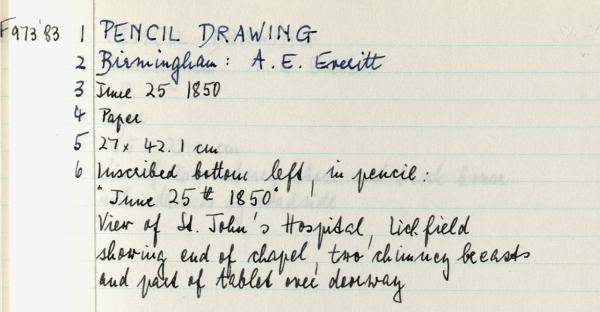 F973'83 1 PENCIL DRAWING
2 Birmingham: A. E. Everitt
3 June 25 1850
4 Paper
5 27 x 42.1 cm
6 Inscribed bottom left, in pencil:
"June 25th 1850"
View of St. John's Hospital, Lichfield
showing end of chapel, two chimney breasts
and part of tablet over doorway